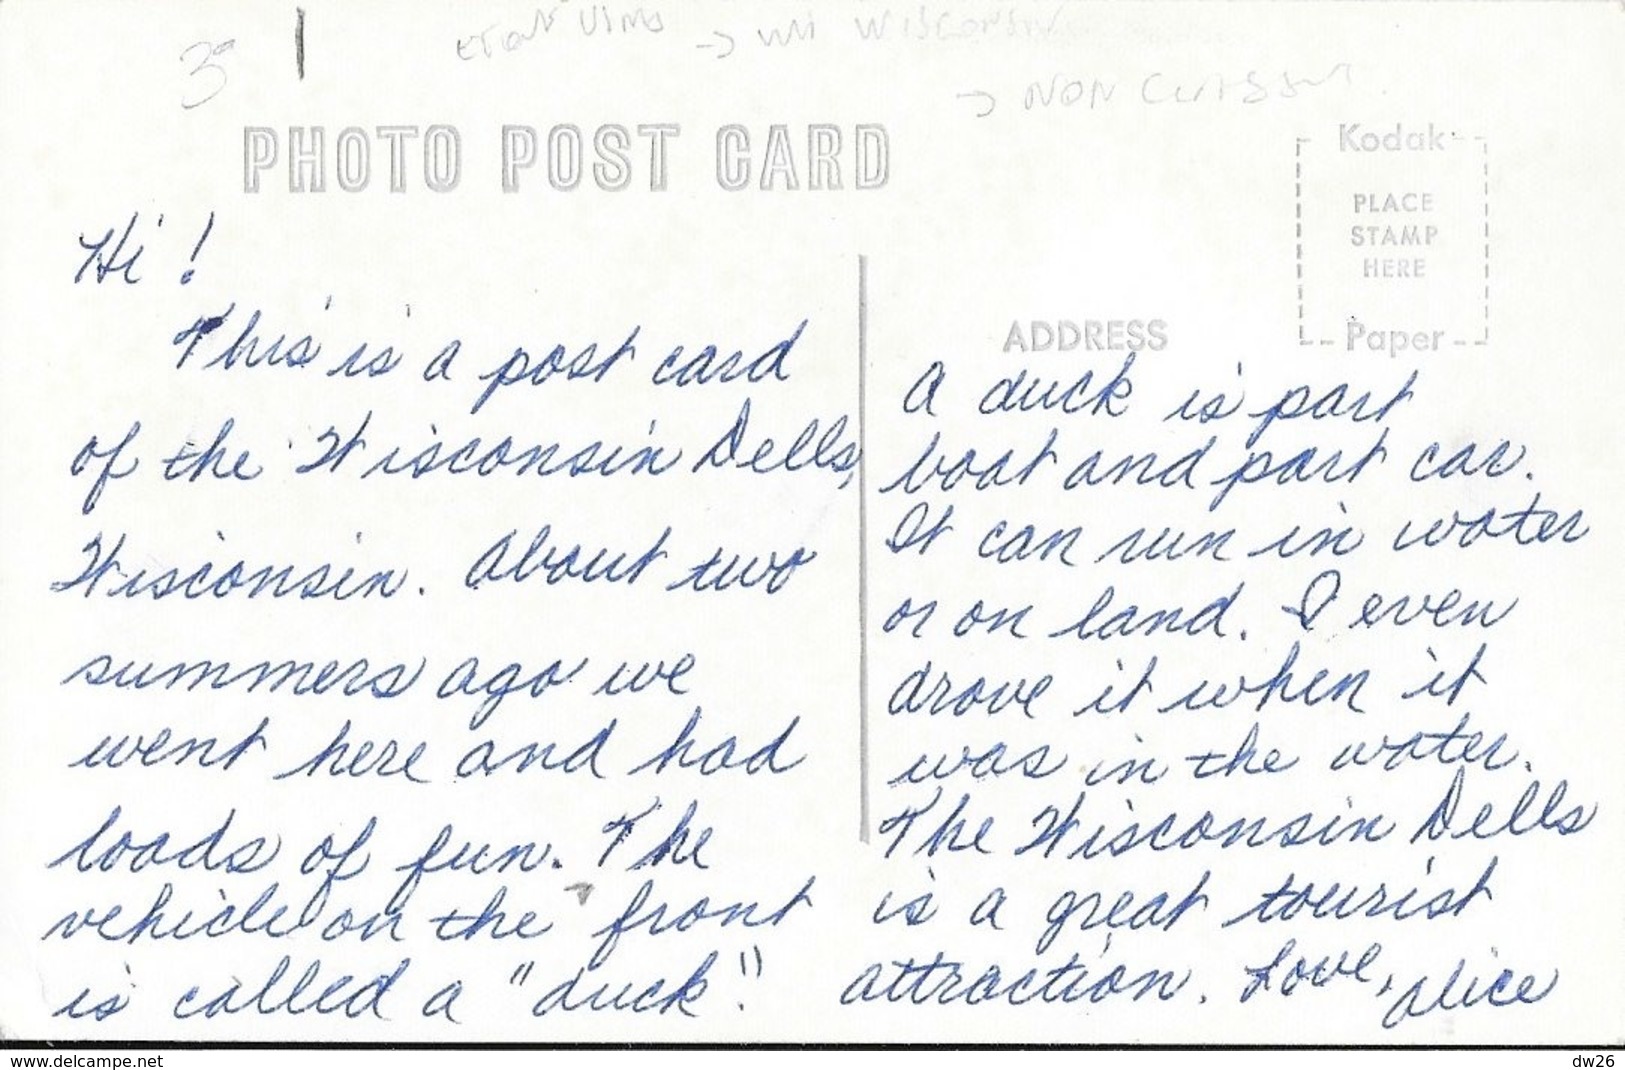 3°
→ WI WISCONSIN
→ NON
PHOTO POST CARD
Kodak
PLACE
STAMP
HERE
Paper
ADDRESS
Hi!
This is a post card
of the Wisconsin Dells,
Wisconsin. About two
summers ago we
went here and had
loads of fun. The
vehicle on the front
is called a "duck."
A duck is part
boat and part car.
It can run in water
or on land. I even
drove it when it
was in the water.
The Wisconsin Dells
is a great tourist
attraction. Love, Alice
www.delcampe.net
dw26